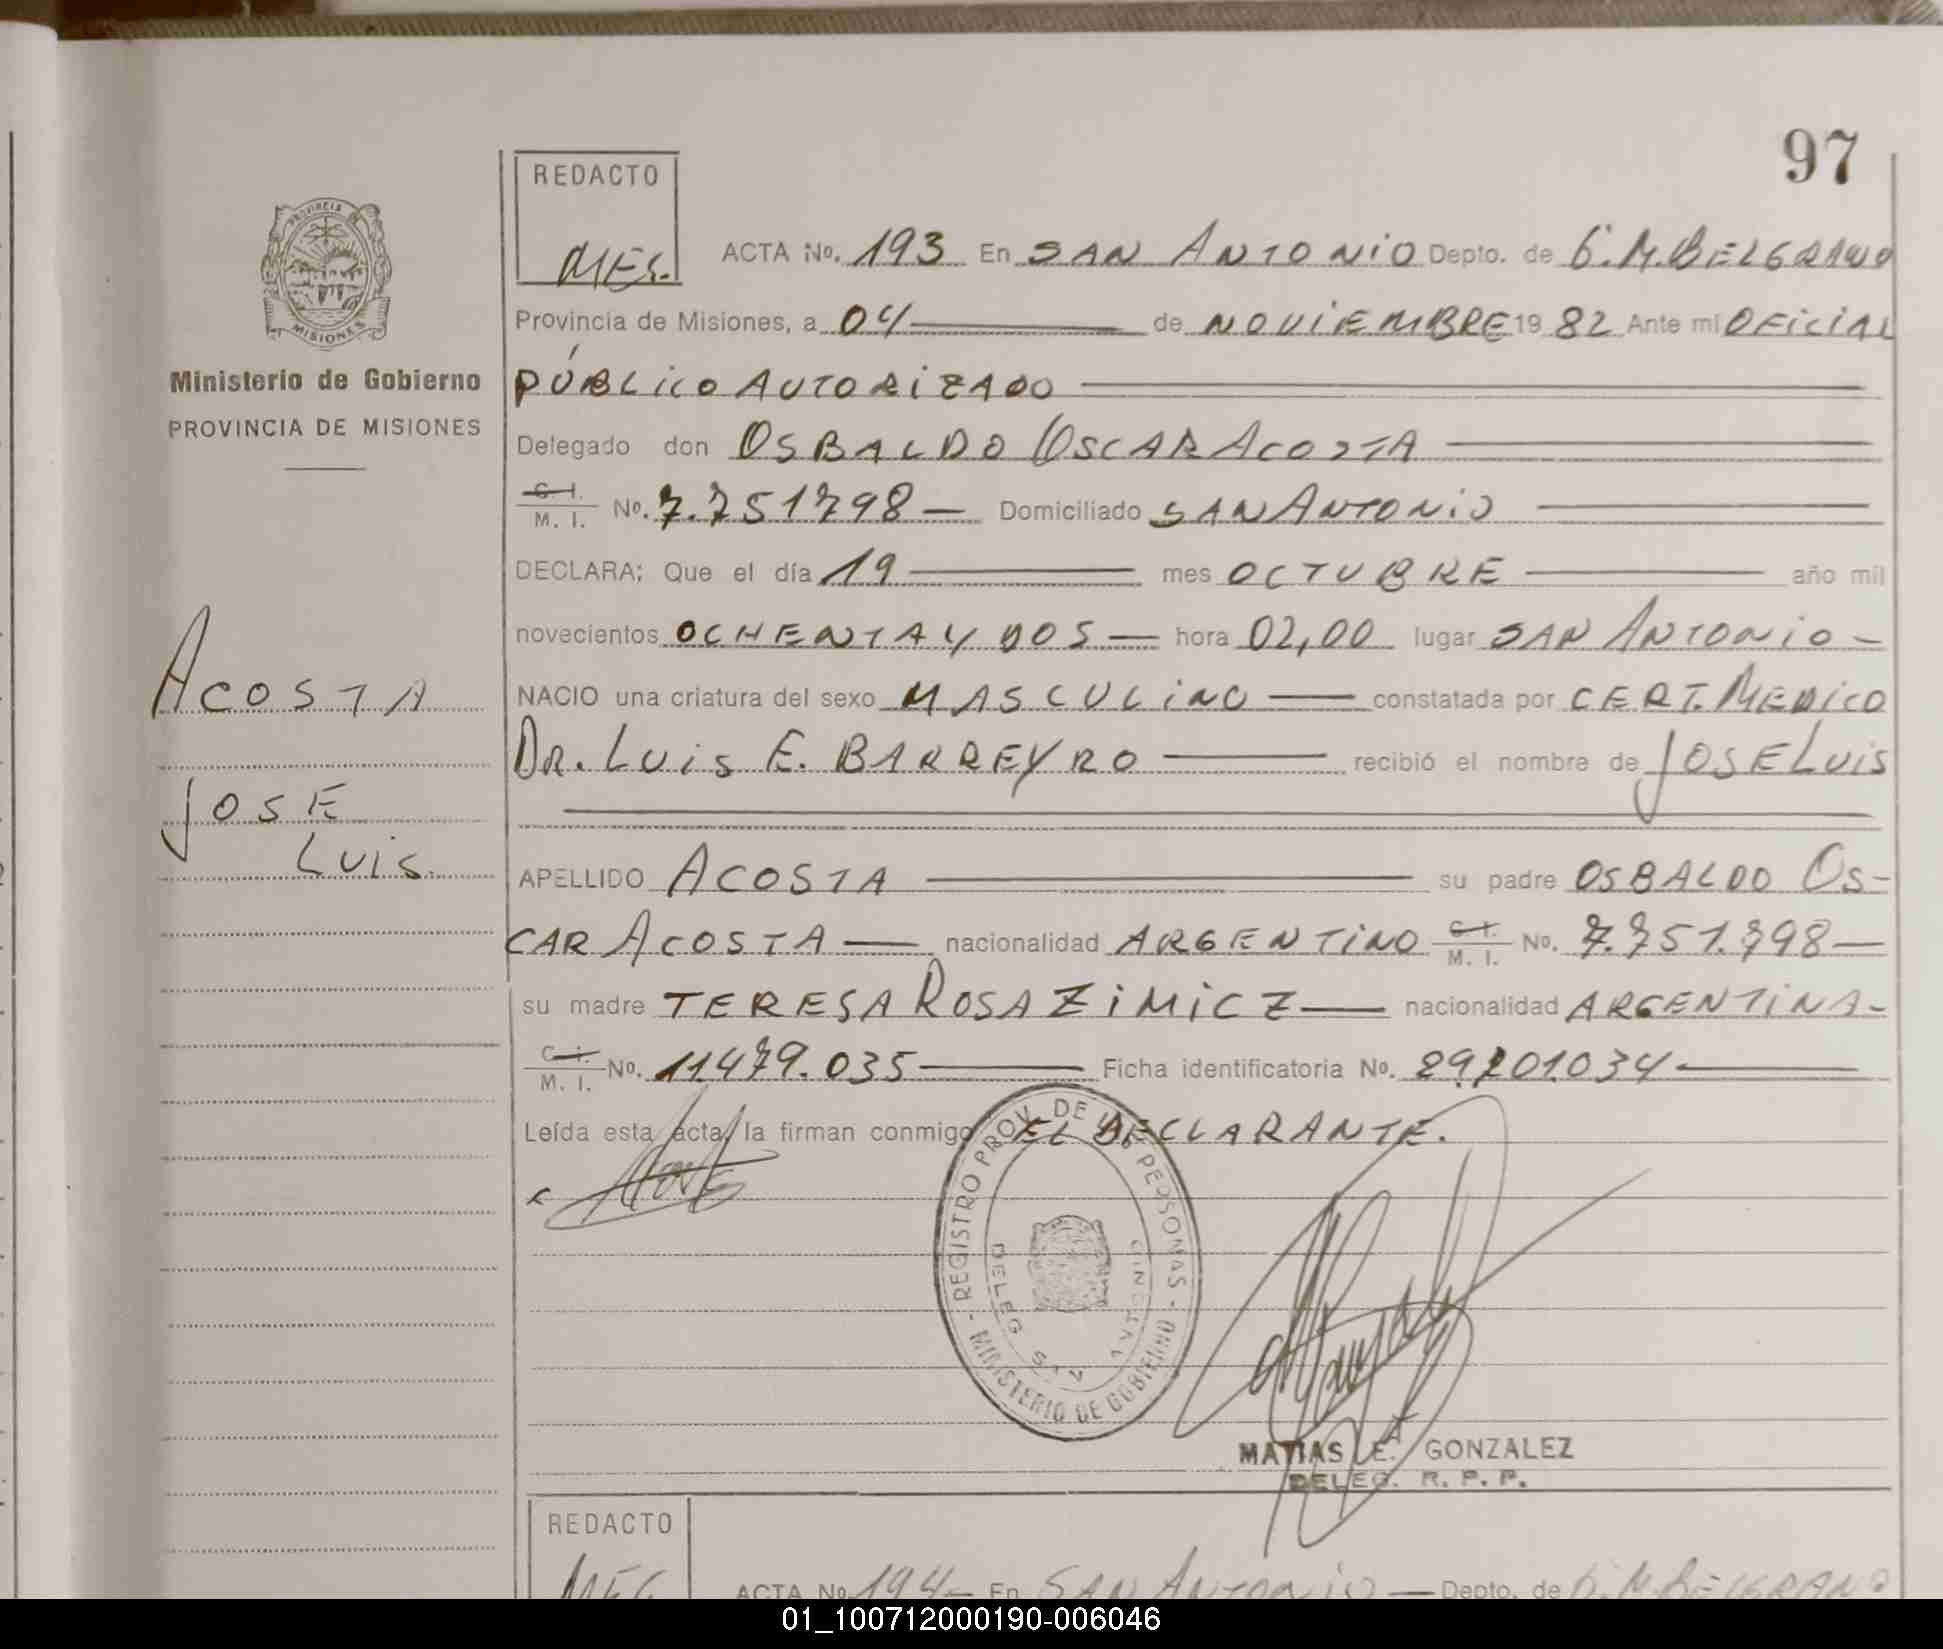 97
REDACTO
MEG.
PROVINCIA
MISIONES
Ministerio de Gobierno
PROVINCIA DE MISIONES
ACTA No. 193 En SAN ANTONIO Depto. de G.M.BELGRANO
Provincia de Misiones, a 04 de NOVIEMBRE 19 82 Ante mi OFICIAL
PÚBLICO AUTORIZADO
Delegado don OSBALDO OSCAR ACOSTA
C. I.
M. I. No. 7.751798 Domiciliado SAN ANTONIO
DECLARA; Que el día 19 mes OCTUBRE año mil
novecientos OCHENTA Y DOS hora 02,00 lugar SAN ANTONIO
ACOSTA
NACIO una criatura del sexo MASCULINO constatada por CERT. MEDICO
DR. LUIS E. BARREYRO recibió el nombre de JOSE LUIS
JOSE
LUIS.
APELLIDO ACOSTA su padre OSBALDO OS-
CAR ACOSTA nacionalidad ARGENTINO C. I. M. I. No. 7.751.798
su madre TERESA ROSA ZIMICZ nacionalidad ARGENTINA
C. I.
M. I. No. 11.479.035 Ficha identificatoria No. 29.201.034
Leída esta acta, la firman conmigo EL DECLARANTE.
REGISTRO PROV. DE LAS PERSONAS - MINISTERIO DE GOBIERNO
DELEG SAN ANTONIO
MATIAS E. GONZALEZ
DELEG. R. P. P.
REDACTO
MEG
ACTA No 194 En SAN ANTONIO Depto. de G.M.BELGRANO
01_100712000190-006046